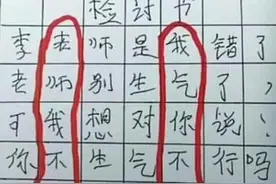 检讨书
李老师是我错了
老师别生气了,
可我想对你说:
你不生气不行吗